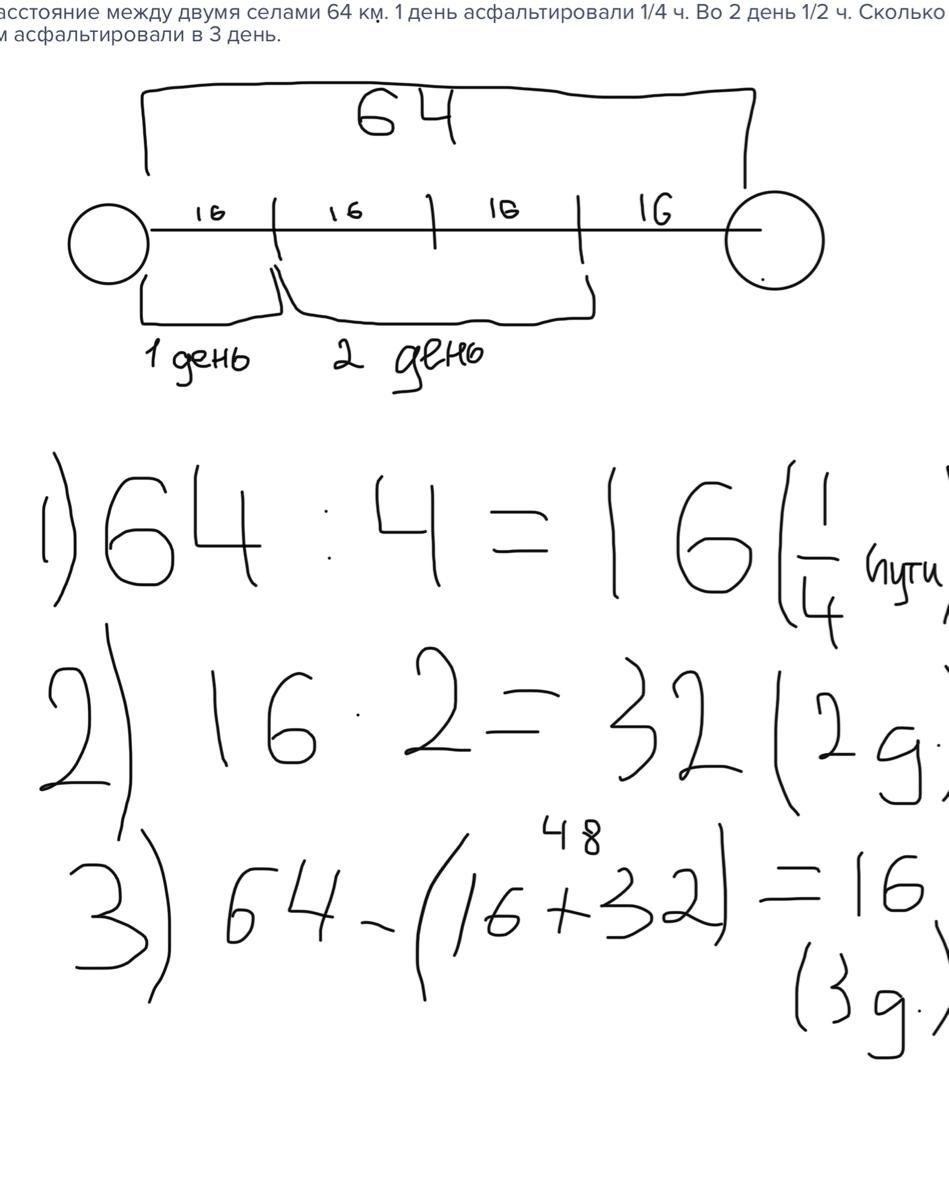 асстояние между двумя селами 64 км. 1 день асфальтировали 1/4 ч. Во 2 день 1/2 ч. Сколько
м асфальтировали в 3 день.
64
16 16 16 16
1 день 2 день
1) 64 : 4 = 16 (1/4 пути)
2) 16 · 2 = 32 (2 д.)
48
3) 64 - (16+32) = 16
(3 д.)